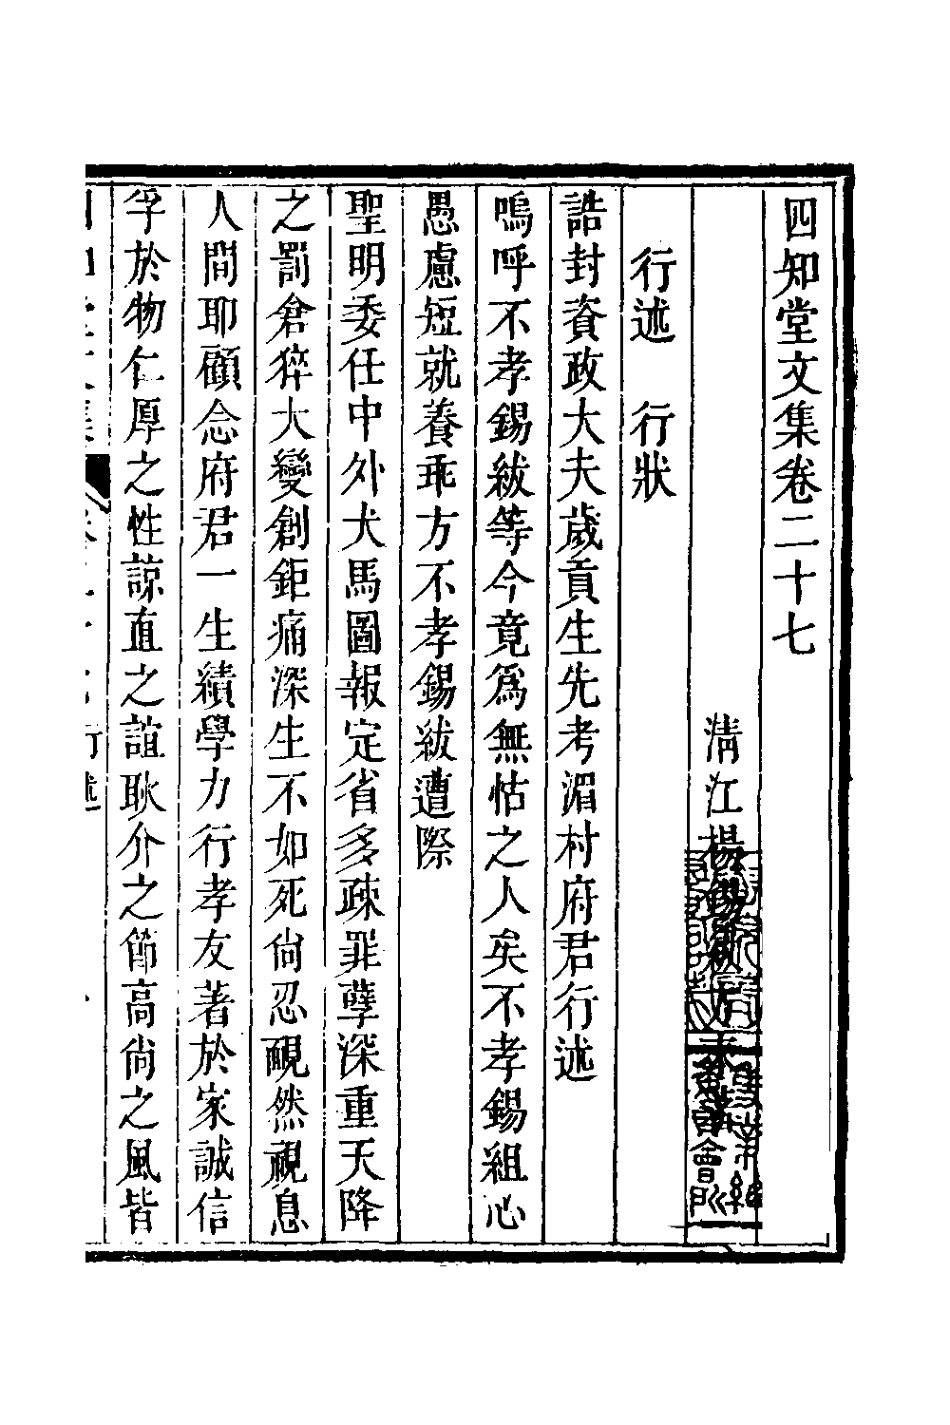 四知堂文集卷二十七
清江楊錫紱方來著
行述　行狀
誥封資政大夫歲貢生先考湄村府君行述
嗚呼不孝錫紱等今竟爲無怙之人矣不孝錫組心
愚慮短就養乖方不孝錫紱遭際
聖明委任中外犬馬圖報定省多疎罪孽深重天降
之罰倉猝大變創鉅痛深生不如死尚忍靦然視息
人間耶顧念府君一生績學力行孝友著於家誠信
孚於物仁厚之性諒直之誼耿介之節高尚之風皆